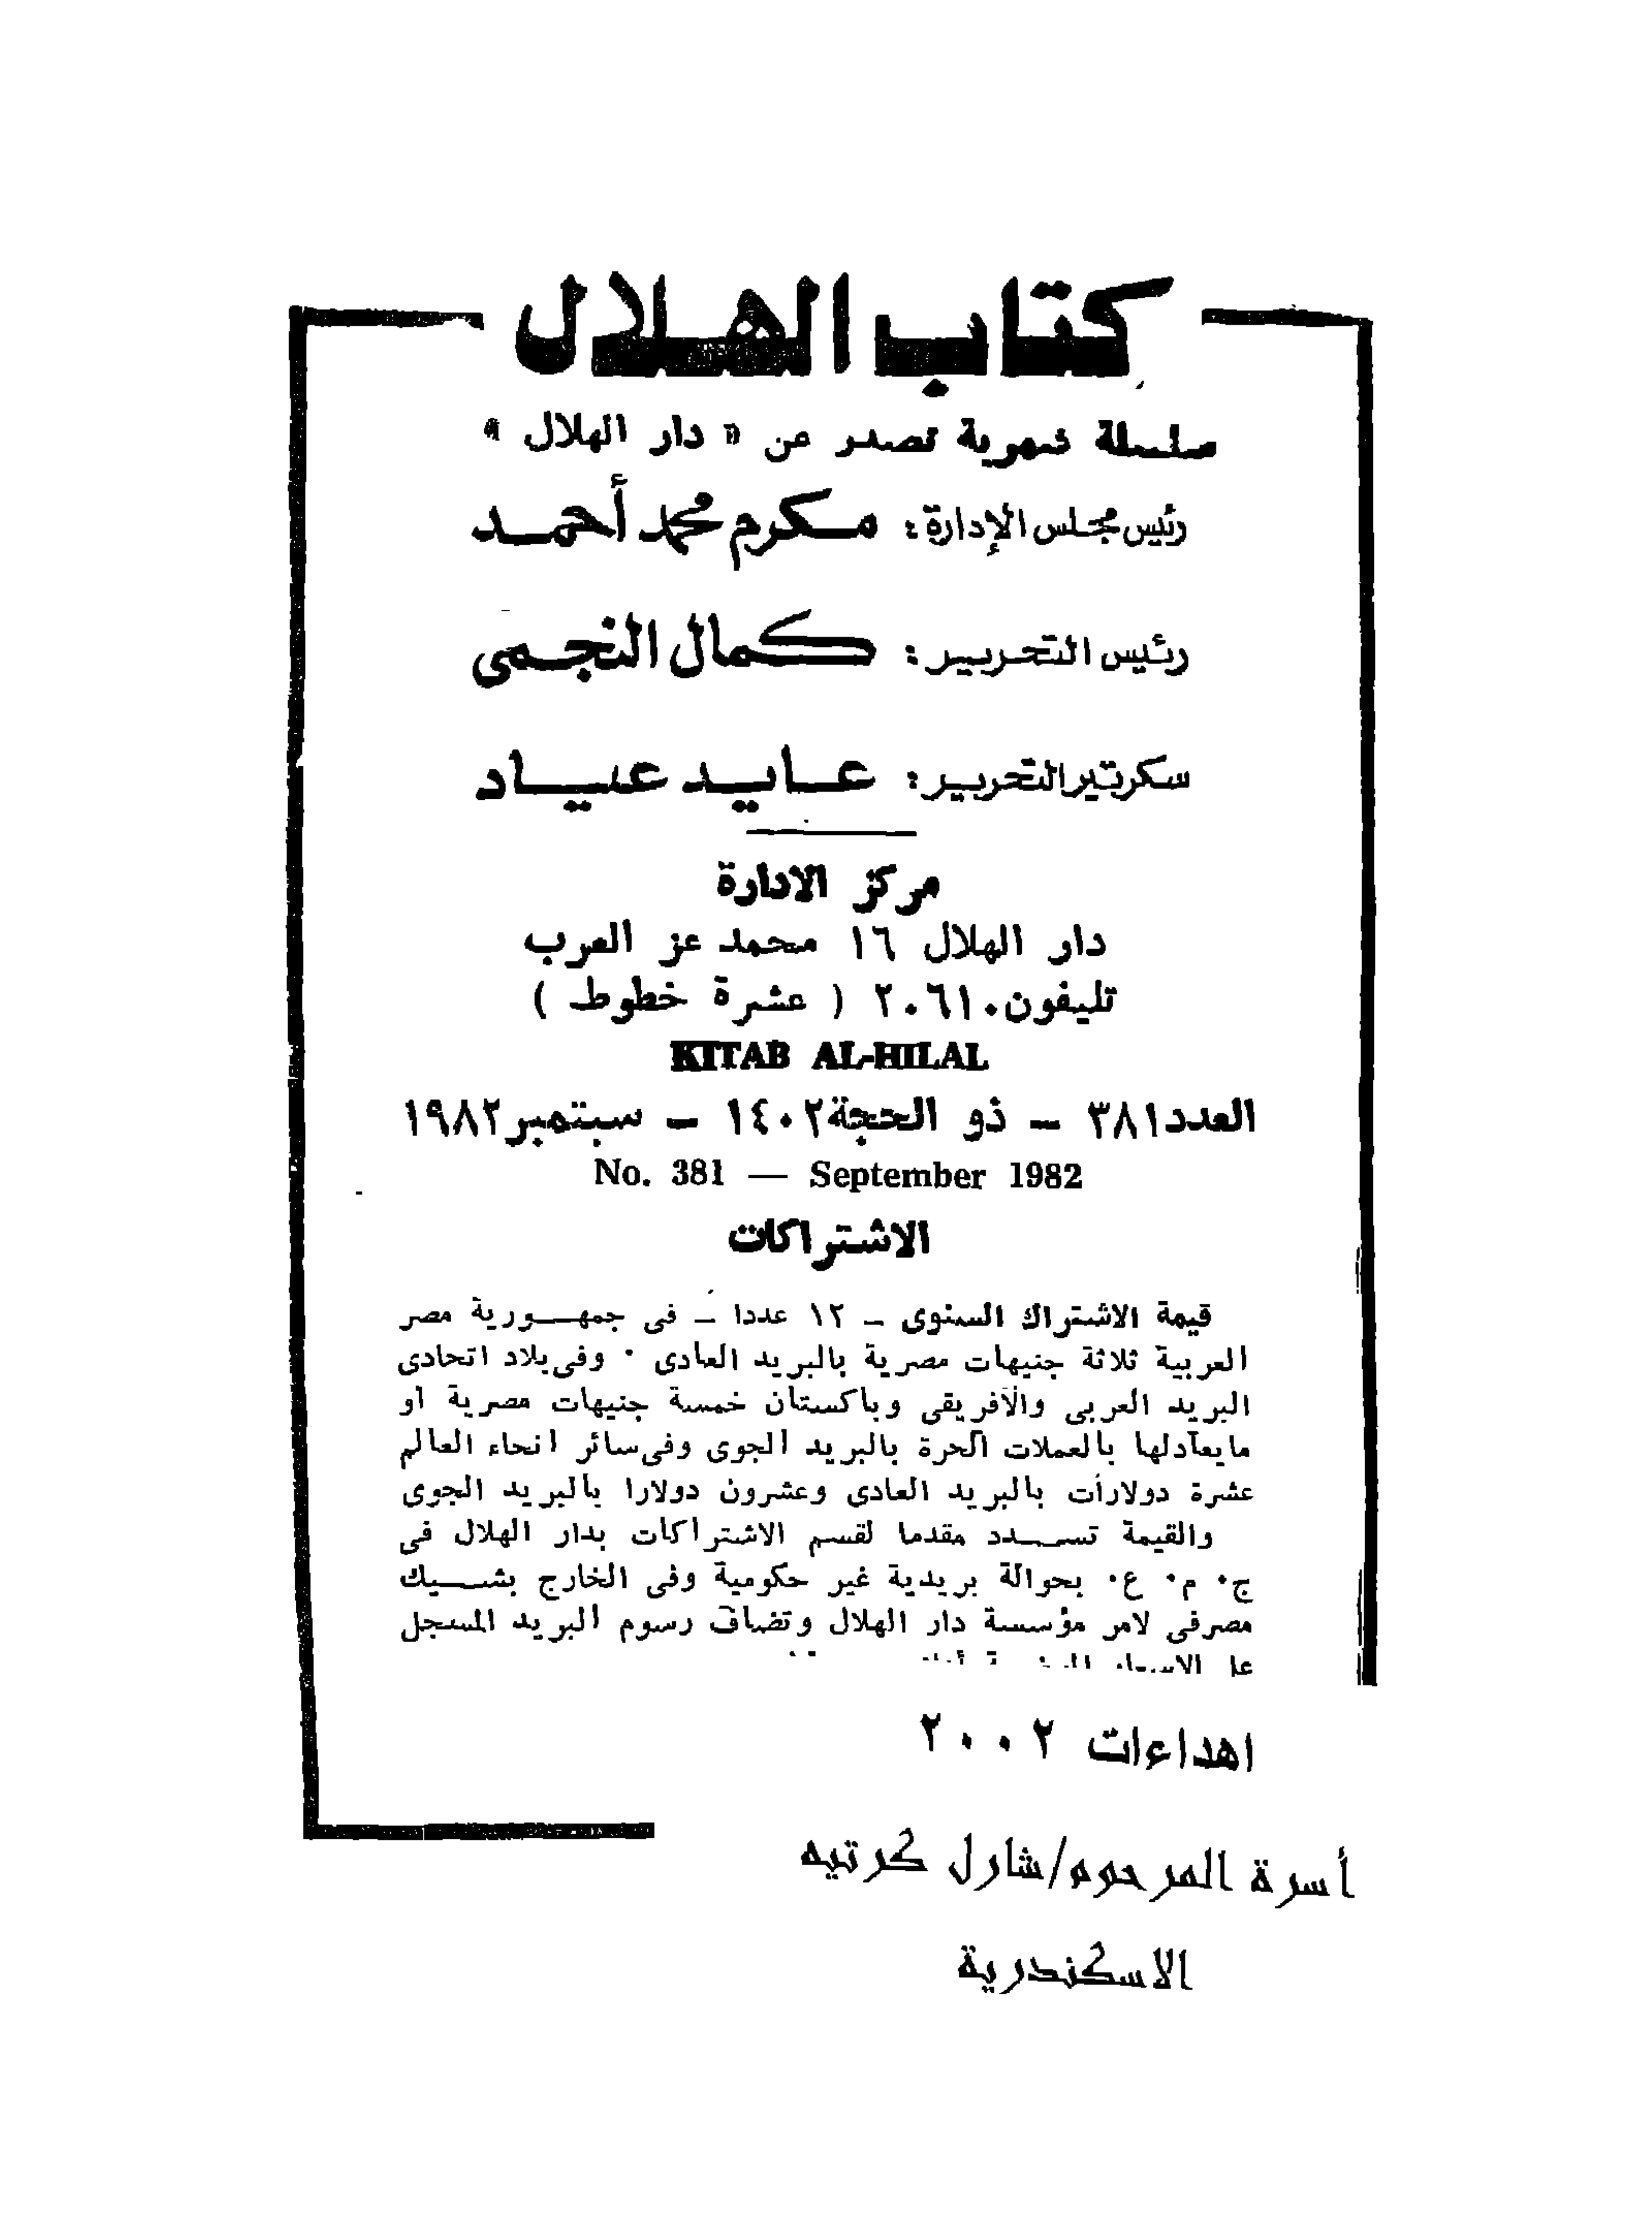 كتاب الهلال
سلسلة شهرية تصدر عن « دار الهلال »
رئيس مجلس الإدارة : مكرم محمد أحمد
رئيس التحرير : كمال النجمى
سكرتير التحرير : عايد عياد
مركز الادارة
دار الهلال ١٦ محمد عز العرب
تليفون ٢٠٦١٠ ( عشرة خطوط )
KITAB AL-HILAL
العدد ٣٨١ – ذو الحجة ١٤٠٢ – سبتمبر ١٩٨٢
No. 381 — September 1982
الاشتراكات
قيمة الاشتراك السنوى – ١٢ عددا – فى جمهورية مصر
العربية ثلاثة جنيهات مصرية بالبريد العادى . وفى بلاد اتحادى
البريد العربى والافريقى وباكستان خمسة جنيهات مصرية او
مايعادلها بالعملات الحرة بالبريد الجوى وفى سائر انحاء العالم
عشرة دولارات بالبريد العادى وعشرون دولارا بالبريد الجوى
والقيمة تسدد مقدما لقسم الاشتراكات بدار الهلال فى
ج . م . ع . بحوالة بريدية غير حكومية وفى الخارج بشيك
مصرفى لامر مؤسسة دار الهلال وتضاف رسوم البريد المسجل
اهداءات ٢٠٠٢
أسرة المرحوم/شارل كرتيه
الاسكندرية